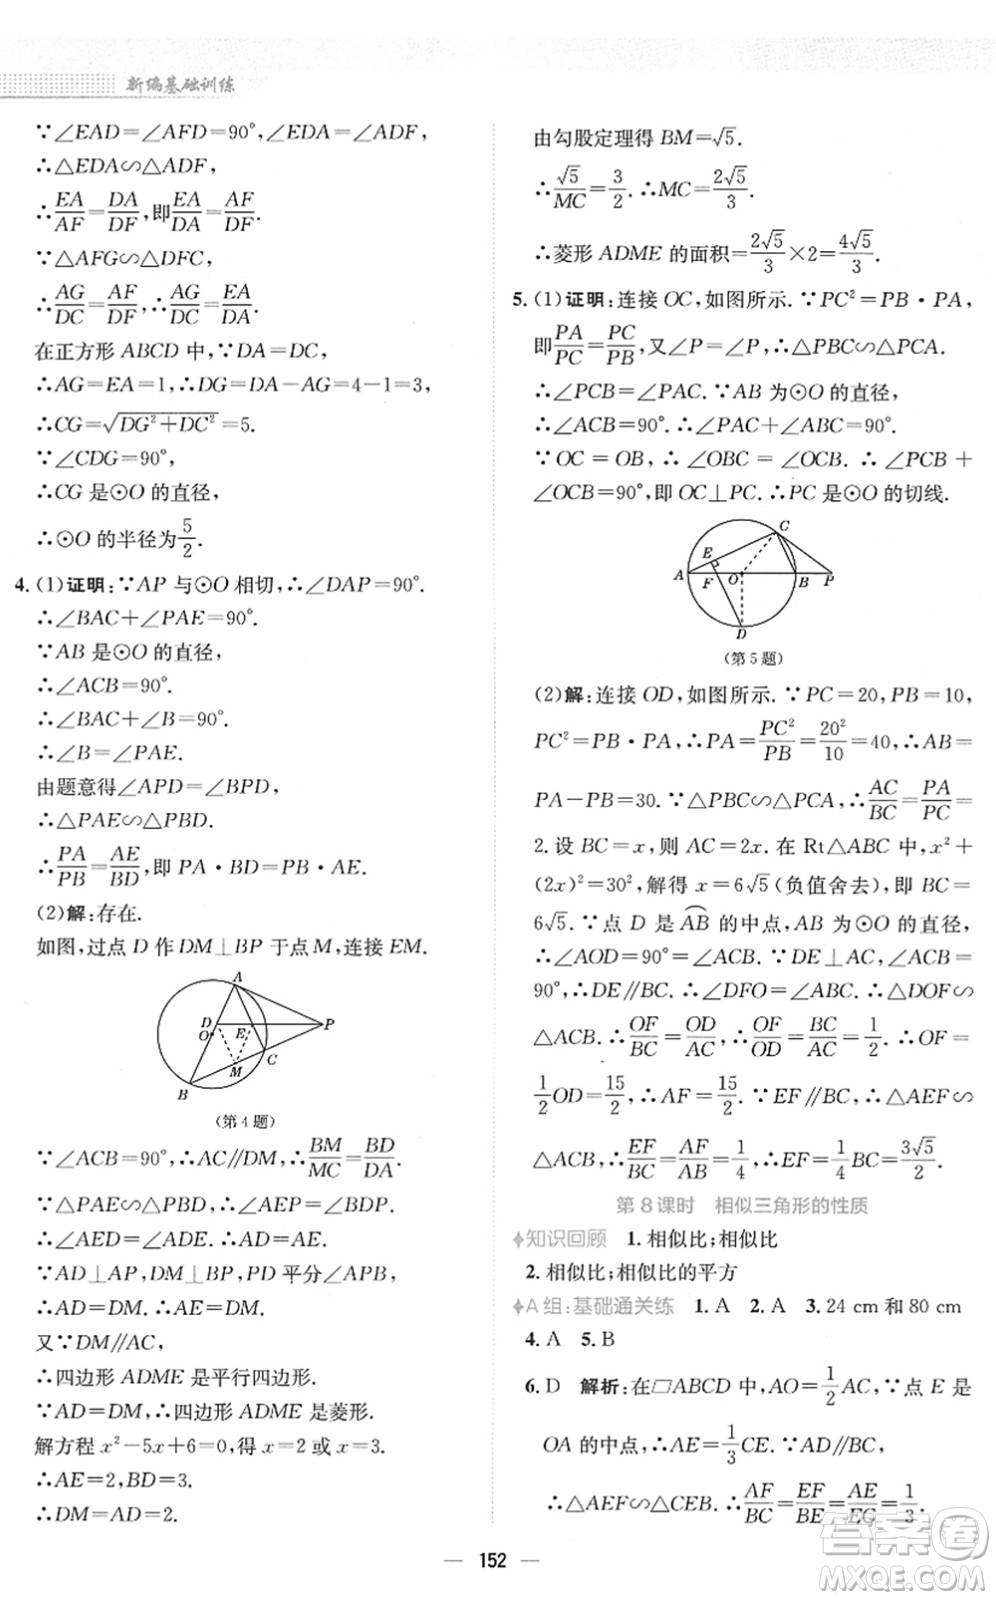 新编基础训练
∵∠EAD=∠AFD=90°,∠EDA=∠ADF,
∴△EDA∽△ADF.
∴EA/AF=DA/DF,即EA/DA=AF/DF.
∵△AFG∽△DFC,
∴AG/DC=AF/DF,∴AG/DC=EA/DA.
在正方形 ABCD 中,∵DA=DC,
∴AG=EA=1,∴DG=DA-AG=4-1=3,
∴CG=√(DG²+DC²)=5.
∵∠CDG=90°,
∴CG 是⊙O 的直径,
∴⊙O 的半径为5/2.
4. (1)证明:∵AP 与⊙O 相切,∴∠DAP=90°.
∴∠BAC+∠PAE=90°.
∵AB 是⊙O 的直径,
∴∠ACB=90°.
∴∠BAC+∠B=90°.
∴∠B=∠PAE.
由题意得∠APD=∠BPD,
∴△PAE∽△PBD.
∴PA/PB=AE/BD,即 PA·BD=PB·AE.
(2)解:存在.
如图,过点 D 作 DM⊥BP 于点 M,连接 EM.
A
D
E
P
O
C
M
B
(第 4 题)
∵∠ACB=90°,∴AC∥DM,∴BM/MC=BD/DA.
∵△PAE∽△PBD,∴∠AEP=∠BDP,
∴∠AED=∠ADE.
∵AD⊥AP,DM⊥BP,PD 平分∠APB,
∴AD=DM.∴AE=DM.
又∵DM∥AC,
∴四边形 ADME 是平行四边形.
∵AD=DM,∴四边形 ADME 是菱形.
解方程 x²-5x+6=0,得 x=2 或 x=3.
∴AE=2,BD=3.
∴DM=AD=2.
由勾股定理得 BM=√5.
∴√5/MC=3/2.∴MC=2√5/3.
∴菱形 ADME 的面积=2√5/3×2=4√5/3.
5. (1)证明:连接 OC,如图所示.∵PC²=PB·PA,
即PA/PC=PC/PB,又∠P=∠P,∴△PBC∽△PCA.
∴∠PCB=∠PAC.∵AB 为⊙O 的直径,
∴∠ACB=90°.∴∠PAC+∠ABC=90°.
∵OC=OB,∴∠OBC=∠OCB.∴∠PCB+
∠OCB=90°,即 OC⊥PC.∴PC 是⊙O 的切线.
C
E
A
F
O
B
P
D
(第 5 题)
(2)解:连接 OD,如图所示.∵PC=20,PB=10,
PC²=PB·PA,∴PA=PC²/PB=20²/10=40,∴AB=
PA-PB=30.∵△PBC∽△PCA,∴AC/BC=PA/PC=
2.设 BC=x,则 AC=2x.在 Rt△ABC 中,x²+
(2x)²=30²,解得 x=6√5(负值舍去),即 BC=
6√5.∵点 D 是 AB⌒ 的中点,AB 为⊙O 的直径,
∴∠AOD=90°.∵DE⊥AC,∴∠AEF=
90°,∴DE∥BC.∴∠DFO=∠ABC.∴△DOF∽
△ACB.∴OF/BC=OD/AC.∴OF/OD=BC/AC=1/2.∴OF=
1/2OD=15/2.∴AF=15/2.∵EF∥BC,∴△AEF∽
△ACB,∴EF/BC=AF/AB=1/4,∴EF=1/4BC=3√5/2.
第 8 课时 相似三角形的性质
知识回顾 1.相似比;相似比
2.相似比;相似比的平方
A 组:基础通关练 1. A 2. A 3. 24 cm 和 80 cm
4. A 5. B
6. D 解析:在▱ABCD 中,AO=1/2AC,∵点 E 是
OA 的中点,∴AE=1/3CE.∵AD∥BC,
∴△AEF∽△CEB.∴AF/BC=EF/BE=AE/EC=1/3.
152
答案圈
MXQE.COM